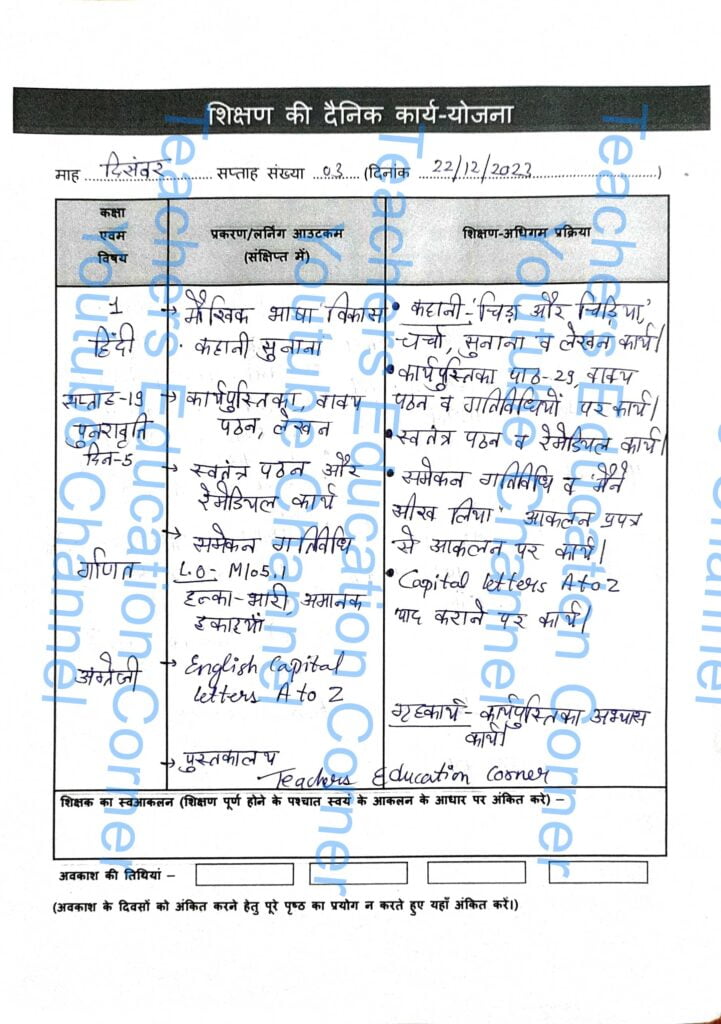 शिक्षण की दैनिक कार्य-योजना
माह दिसंबर सप्ताह संख्या 03 (दिनांक 22/12/2023)
कक्षा
एवम
विषय
प्रकरण/लर्निंग आउटकम
(संक्षिप्त में)
शिक्षण-अधिगम प्रक्रिया
1
हिंदी
सप्ताह-19
पुनरावृति
दिन-5
गणित
अंग्रेजी
→ मौखिक भाषा विकास
· कहानी सुनाना
→ कार्यपुस्तिका, वाक्य
पठन, लेखन
→ स्वतंत्र पठन और
रेमेडियल कार्य
→ समेकन गतिविधि
L.O- M105.1
हल्का-भारी, अमानक
इकाइयाँ
→ English Capital
letters A to Z
→ पुस्तकालय
• कहानी- 'चिड़ा और चिड़िया,'
चर्चा, सुनाना व लेखन कार्य।
• कार्यपुस्तिका पाठ-29, वाक्य
पठन व गतिविधियों पर कार्य।
• स्वतंत्र पठन व रेमेडियल कार्य।
• समेकन गतिविधि व 'मैने
सीख लिया' आकलन प्रपत्र
से आकलन पर कार्य।
• Capital letters A to Z
याद कराने पर कार्य।
गृहकार्य - कार्यपुस्तिका अभ्यास
कार्य।
Teachers Education Corner
शिक्षक का स्वआकलन (शिक्षण पूर्ण होने के पश्चात स्वयं के आकलन के आधार पर अंकित करे) –
अवकाश की तिथियां –
(अवकाश के दिवसों को अंकित करने हेतु पूरे पृष्ठ का प्रयोग न करते हुए यहाँ अंकित करें।)
Teachers Education Corner
Youtube Channel
Teachers Education Corner
Youtube Channel
Teachers Education Corner
Youtube Channel